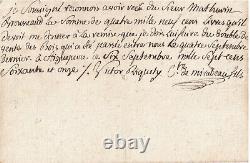 Je Soussigné reconnois avoir reçu du Sieur Mathurin
la Somme de quatre mille neuf cent Livres qu'il
devoit me donner à la remise que je dois luy faire du double de
vente des bois qui a été passé entre nous Le quatre Septembre
dernier a Aigueperse ce Six Septembre mille Sept cens
Soixante et onze /. Victor Riquety Cte de mirabeau fils